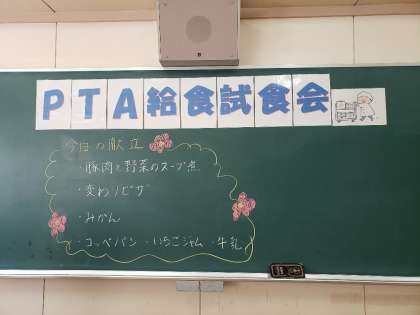 PTA給食試食会
今日の献立
・豚肉と野菜のスープ煮
・変わりピザ
・みかん
・コッペパン ・いちごジャム ・牛乳